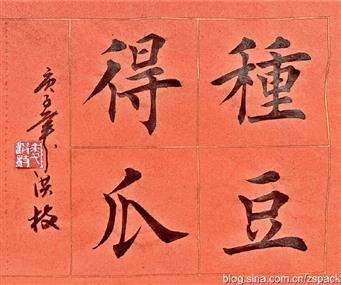 種豆
得瓜
庚子
洪
blog.sina.com.cn/zspack